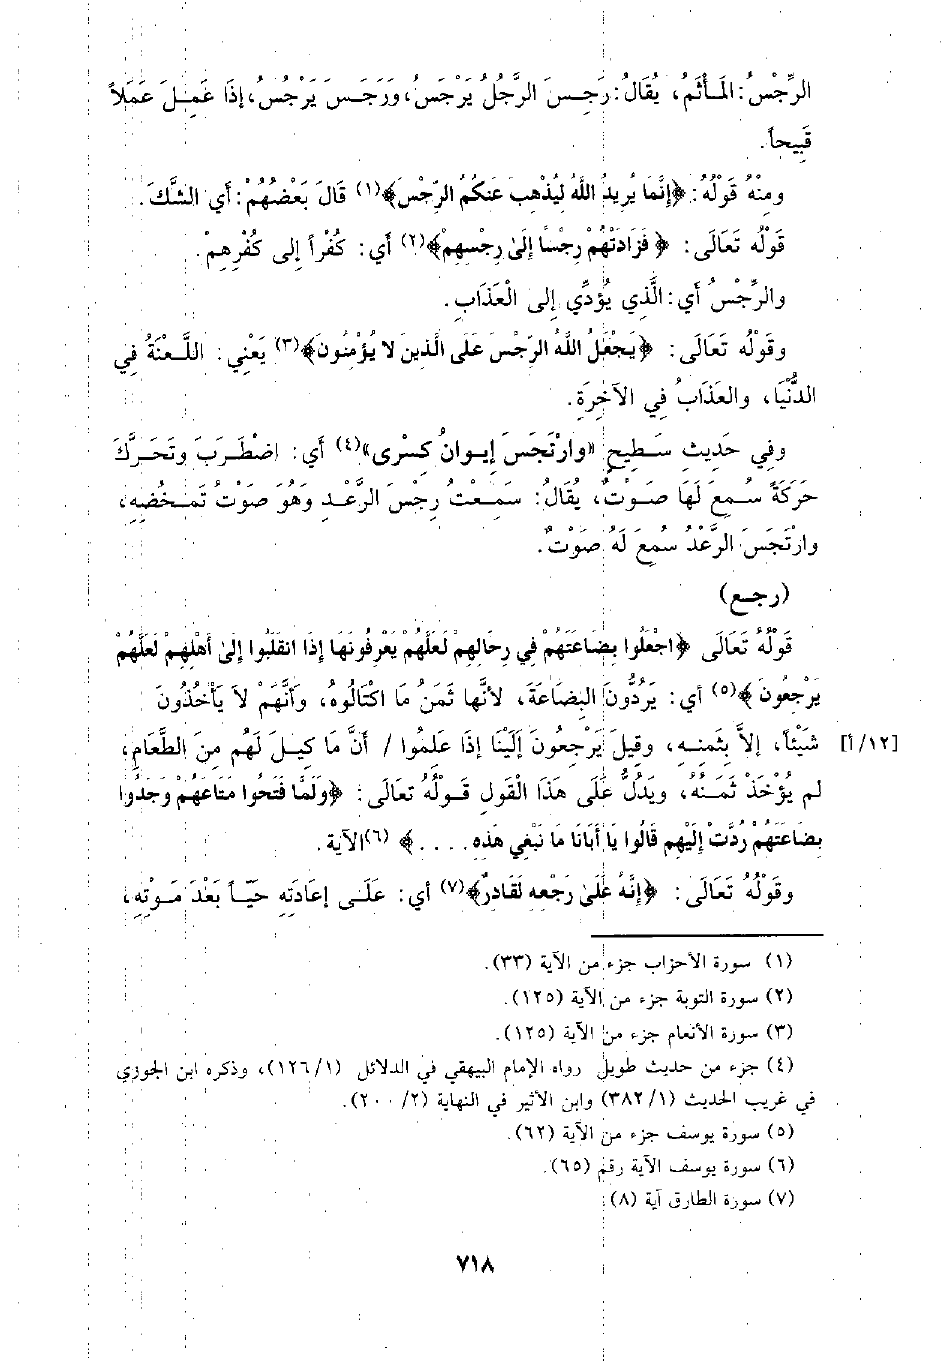 الرِّجْسُ: المَأْثَمُ، يُقَالُ: رَجِسَ الرَّجُلُ يَرْجَسُ، ورَجَسَ يَرْجُسُ، إذَا عَمِلَ عَمَلاً
قَبِيحاً.
ومِنْهُ قَوْلُهُ: ﴿إنَّمَا يُرِيدُ اللهُ لِيُذْهِبَ عَنكُمُ الرِّجْسَ﴾(١) قَالَ بَعْضُهُمْ: أي الشَّكَّ.
قَوْلُه تَعَالَى: ﴿فَزَادَتْهُمْ رِجْسًا إلَىٰ رِجْسِهِمْ﴾(٢) أي: كُفْراً إلى كُفْرِهِمْ.
والرِّجْسُ أي: الَّذي يُؤدِّي إلى الْعَذَابِ.
وقَوْلُه تَعَالَى: ﴿يَجْعَلُ اللَّهُ الرِّجْسَ عَلَى الَّذِينَ لا يُؤْمِنُونَ﴾(٣) يَعْنِي: اللَّعْنَةُ فِي
الدُّنْيَا، والعَذَابُ فِي الآخِرَةِ.
وفِي حَدِيثِ سَطِيحٍ «وارْتَجَسَ إيوانُ كِسْرى»(٤) أي: اضْطَرَبَ وتَحَرَّكَ
حَرَكَةً سُمِعَ لَهَا صَوْتٌ، يُقَالُ: سَمِعْتُ رِجْسَ الرَّعْدِ وهُوَ صَوْتُ تَمَخُضِهِ،
وارْتَجَسَ الرَّعْدُ سُمِعَ لَهُ صَوْتٌ.
(رجع)
قَوْلُهُ تَعَالَى ﴿اجْعَلُوا بِضَاعَتَهُمْ فِي رِحَالِهِمْ لَعَلَّهُمْ يَعْرِفُونَهَا إذَا انقَلَبُوا إلَىٰ أَهْلِهِمْ لَعَلَّهُمْ
يَرْجِعُونَ﴾(٥) أي: يَرُدُّونَ البِضَاعَةَ، لأنَّها ثَمَنُ مَا اكْتَالُوهُ، وأنَّهَمْ لاَ يَأْخُذُونَ
شَيْئاً، إلاَّ بِثَمَنِهِ، وقِيلَ يَرْجِعُونَ إلَيْنَا إذَا عَلِمُوا / أنَّ مَا كِيلَ لَهُم مِنَ الطَّعَامِ، [١٢/أ]
لم يُؤْخَذْ ثَمَنُهُ، ويَدُلُّ عَلَى هَذَا القَوْلِ قَوْلُهُ تَعالَى: ﴿ولَمَّا فَتَحُوا مَتَاعَهُمْ وَجَدُوا
بِضَاعَتَهُمْ رُدَّتْ إلَيْهِم قَالُوا يَا أَبَانَا مَا نَبْغِي هَذِهِ . . . .﴾ (٦)الآية.
وقَوْلُهُ تَعَالَى: ﴿إنَّهُ عَلَىٰ رَجْعِهِ لَقَادِرٌ﴾(٧) أي: عَلَى إعَادَتِهِ حَيّاً بَعْدَ مَوْتِهِ،
(١) سورة الأحزاب جزء من الآية (٣٣).
(٢) سورة التوبة جزء من الآية (١٢٥).
(٣) سورة الأنعام جزء من الآية (١٢٥).
(٤) جزء من حديث طويل رواه الإمام البيهقي في الدلائل (١٢٦/١)، وذكره ابن الجوزي
في غريب الحديث (٣٨٢/١) وابن الأثير في النهاية (٢٠٠/٢).
(٥) سورة يوسف جزء من الآية (٦٢).
(٦) سورة يوسف الآية رقم (٦٥).
(٧) سورة الطارق آية (٨)
٧١٨